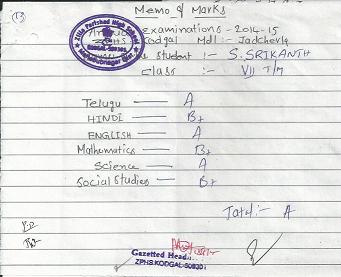 13
Memo of Marks
Zilla Parishad High School
examinations - 2014-15
ZPHS Kodgal Mdl :- Jadcherla
Student :- S. SRIKANTH
class :- VII T/M
Telugu — A
HINDI — B+
ENGLISH — A
Mathematics — B+
Science — A
Social Studies — B+
Total :- A
Gazetted Head
ZPHS KODGAL-50930